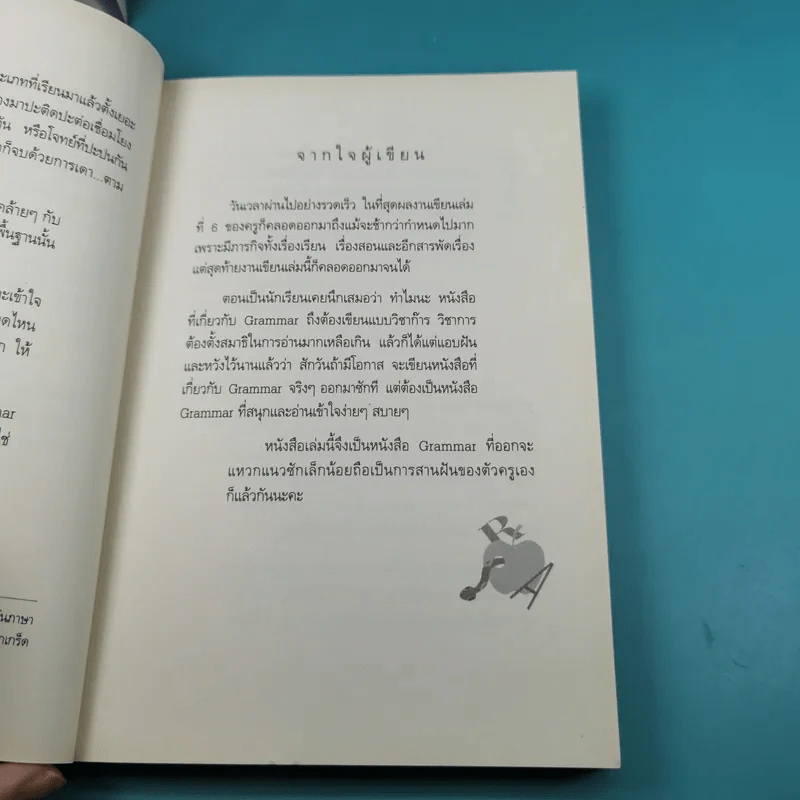 ะเภทที่เรียนมาแล้วตั้งเยอะ
องมาปะติดปะต่อเชื่อมโยง
กัน หรือโจทย์ที่ปะปนกัน
ก็จบด้วยการเดา...ตาม
คล้ายๆ กับ
พื้นฐานนั้น
ะเข้าใจ
ดไหน
ให้
mar
ใช่
ันภาษา
เกร็ด
จากใจผู้เขียน
วันเวลาผ่านไปอย่างรวดเร็ว ในที่สุดผลงานเขียนเล่ม
ที่ 6 ของครูก็คลอดออกมาถึงแม้จะช้ากว่ากำหนดไปมาก
เพราะมีภารกิจทั้งเรื่องเรียน เรื่องสอนและอีกสารพัดเรื่อง
แต่สุดท้ายงานเขียนเล่มนี้ก็คลอดออกมาจนได้
ตอนเป็นนักเรียนเคยนึกเสมอว่า ทำไมนะ หนังสือ
ที่เกี่ยวกับ Grammar ถึงต้องเขียนแบบวิชาก๊าร วิชาการ
ต้องตั้งสมาธิในการอ่านมากเหลือเกิน แล้วก็ได้แต่แอบฝัน
และหวังไว้นานแล้วว่า สักวันถ้ามีโอกาส จะเขียนหนังสือที่
เกี่ยวกับ Grammar จริงๆ ออกมาซักที แต่ต้องเป็นหนังสือ
Grammar ที่สนุกและอ่านเข้าใจง่ายๆ สบายๆ
หนังสือเล่มนี้จึงเป็นหนังสือ Grammar ที่ออกจะ
แหวกแนวซักเล็กน้อยถือเป็นการสานฝันของตัวครูเอง
ก็แล้วกันนะคะ